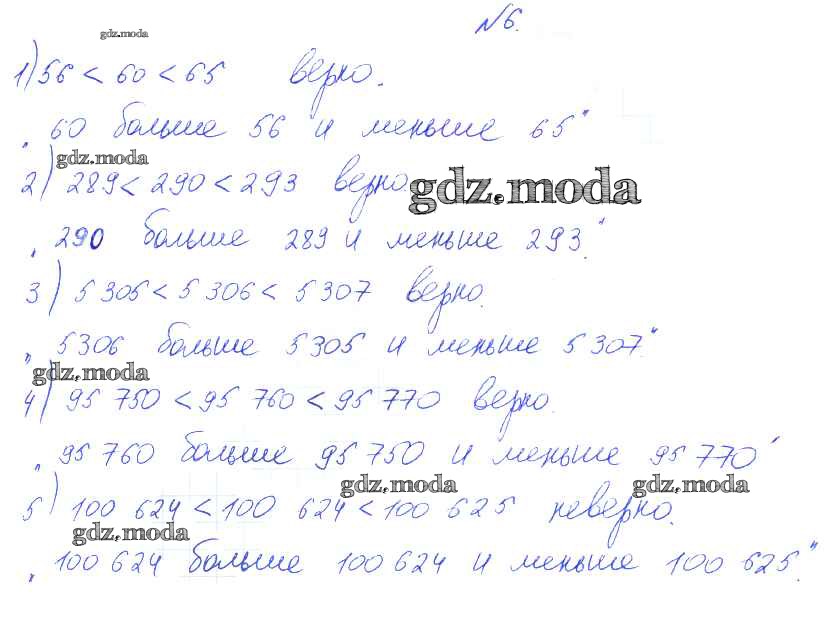 gdz.moda
№6.
1) 56 < 60 < 65 верно.
„60 больше 56 и меньше 65"
gdz.moda
2) 289 < 290 < 293 верно.
gdz.moda
„290 больше 289 и меньше 293."
3) 5 305 < 5 306 < 5 307 верно.
„5306 больше 5305 и меньше 5307."
gdz.moda
4) 95 750 < 95 760 < 95 770 верно.
„95 760 больше 95 750 и меньше 95 770"
gdz.moda gdz.moda
5) 100 624 < 100 624 < 100 625 неверно.
gdz.moda
„100 624 больше 100 624 и меньше 100 625."